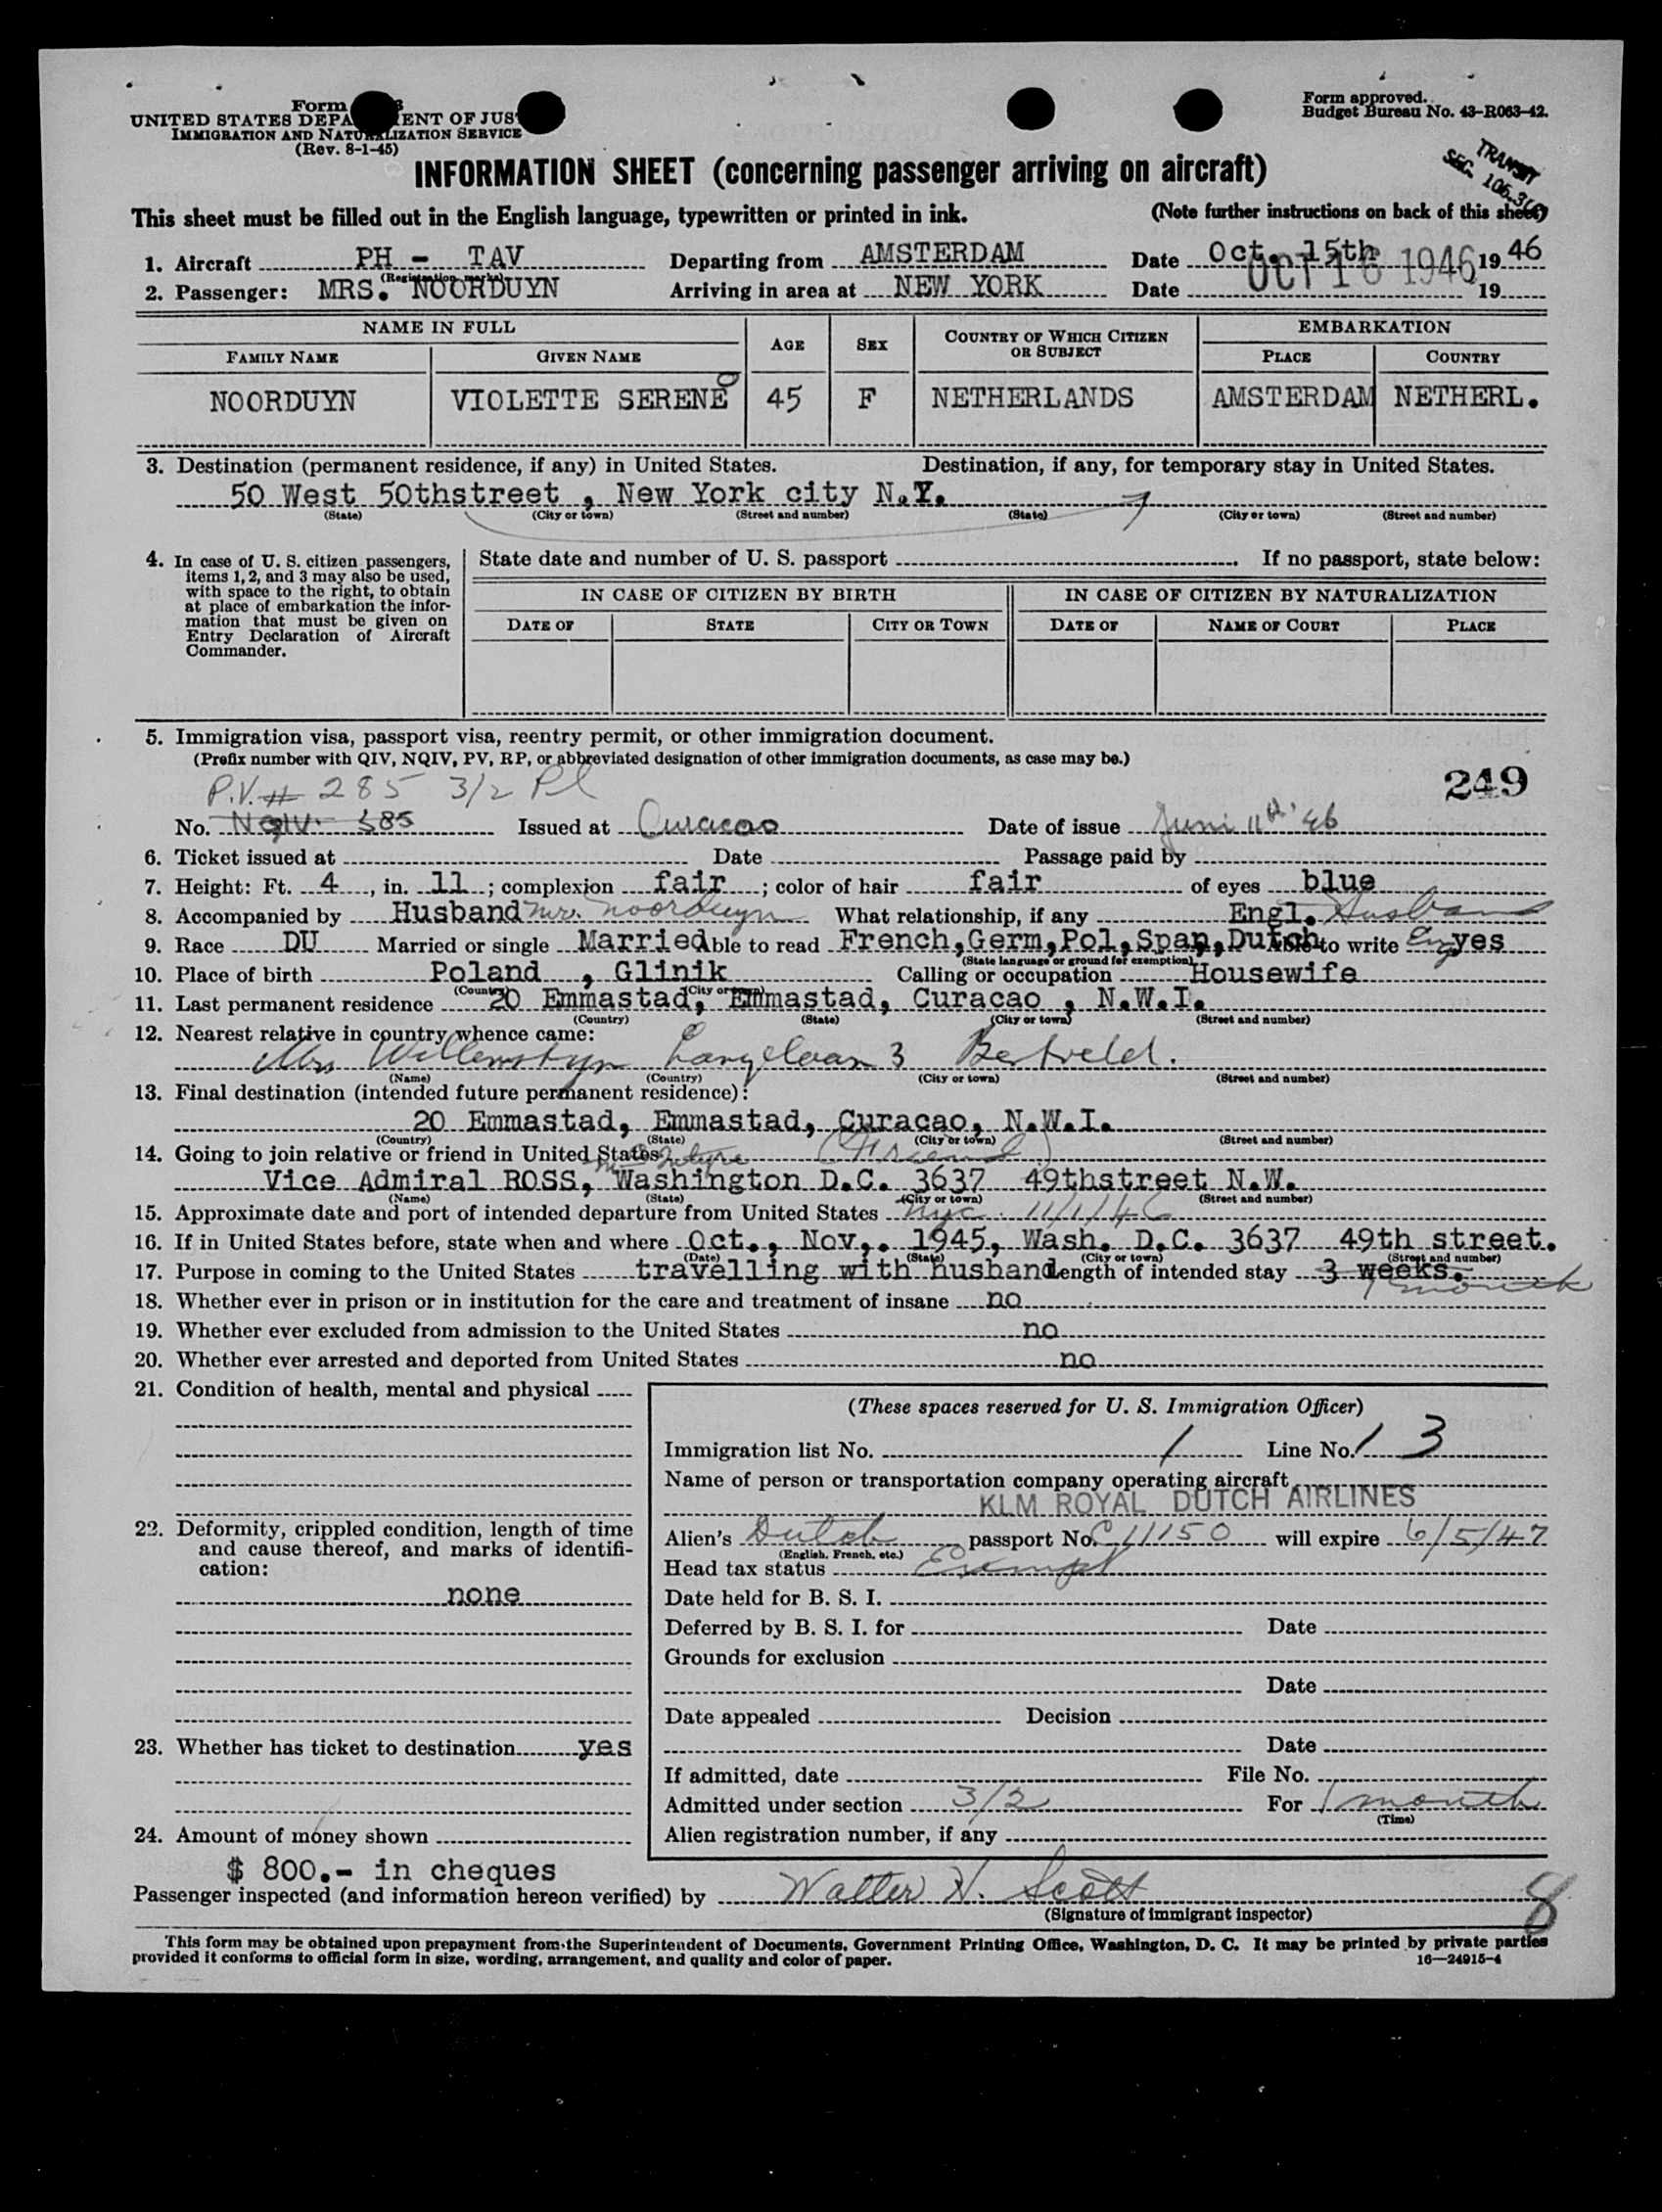 Form
UNITED STATES DEPA ENT OF JUS
IMMIGRATION AND NATURALIZATION SERVICE
(Rev. 8-1-45)
Form approved.
Budget Bureau No. 43-R063-42.
TRANSIT
SEC. 106.3
INFORMATION SHEET (concerning passenger arriving on aircraft)
This sheet must be filled out in the English language, typewritten or printed in ink. (Note further instructions on back of this sheet)
1. Aircraft PH - TAV Departing from AMSTERDAM Date Oct. 15th 19 46
(Registration marks)
2. Passenger: MRS. NOORDUYN Arriving in area at NEW YORK Date OCT 16 1946 19
NAME IN FULL AGE SEX COUNTRY OF WHICH CITIZEN OR SUBJECT EMBARKATION
FAMILY NAME GIVEN NAME PLACE COUNTRY
NOORDUYN VIOLETTE SERENE 45 F NETHERLANDS AMSTERDAM NETHERL.
3. Destination (permanent residence, if any) in United States. Destination, if any, for temporary stay in United States.
50 West 50thstreet , New York city N.Y.
(State) (City or town) (Street and number) (State) (City or town) (Street and number)
4. In case of U. S. citizen passengers, items 1, 2, and 3 may also be used, with space to the right, to obtain at place of embarkation the information that must be given on Entry Declaration of Aircraft Commander.
State date and number of U. S. passport . If no passport, state below:
IN CASE OF CITIZEN BY BIRTH IN CASE OF CITIZEN BY NATURALIZATION
DATE OF STATE CITY OR TOWN DATE OF NAME OF COURT PLACE
5. Immigration visa, passport visa, reentry permit, or other immigration document.
(Prefix number with QIV, NQIV, PV, RP, or abbreviated designation of other immigration documents, as case may be.)
P.V. # 285 3/2 Pl 249
No. NQIV. 385 Issued at Curacao Date of issue Juni 11th '46
6. Ticket issued at Date Passage paid by
7. Height: Ft. 4, in. 11; complexion fair; color of hair fair of eyes blue
8. Accompanied by Husband Mr. Noorduyn What relationship, if any Engl. Husband
9. Race DU Married or single Married Able to read French,Germ,Pol,Span,Dutch Able to write Eng yes
(State language or ground for exemption)
10. Place of birth Poland , Glinik Calling or occupation Housewife
(Country) (City or town)
11. Last permanent residence 20 Emmastad, Emmastad, Curacao , N.W.I.
(Country) (State) (City or town) (Street and number)
12. Nearest relative in country whence came:
Mrs Willemstyn Langelaan 3
(Name) (Country) (City or town) (Street and number)
13. Final destination (intended future permanent residence):
20 Emmastad, Emmastad, Curacao, N.W.I.
(Country) (State) (City or town) (Street and number)
14. Going to join relative or friend in United States (Friend)
Vice Admiral ROSS, Washington D.C. 3637 49thstreet N.W.
(Name) (State) (City or town) (Street and number)
15. Approximate date and port of intended departure from United States NYC. 11/1/46
16. If in United States before, state when and where Oct., Nov,. 1945, Wash. D.C. 3637 49th street.
(Date) (State) (City or town) (Street and number)
17. Purpose in coming to the United States travelling with husband Length of intended stay 3 weeks.
1 month
18. Whether ever in prison or in institution for the care and treatment of insane no
19. Whether ever excluded from admission to the United States no
20. Whether ever arrested and deported from United States no
21. Condition of health, mental and physical
22. Deformity, crippled condition, length of time and cause thereof, and marks of identification:
none
23. Whether has ticket to destination yes
24. Amount of money shown
$ 800.- in cheques
(These spaces reserved for U. S. Immigration Officer)
Immigration list No. 1 Line No. 13
Name of person or transportation company operating aircraft
KLM ROYAL DUTCH AIRLINES
Alien's Dutch passport No. C 11150 will expire 6/5/47
(English, French, etc.)
Head tax status Exempt
Date held for B. S. I.
Deferred by B. S. I. for Date
Grounds for exclusion
Date
Date appealed Decision
Date
If admitted, date File No.
Admitted under section 3/2 For 1 month
(Time)
Alien registration number, if any
Passenger inspected (and information hereon verified) by Walter H. Scott
(Signature of immigrant inspector)
8
This form may be obtained upon prepayment from the Superintendent of Documents, Government Printing Office, Washington, D. C. It may be printed by private parties
provided it conforms to official form in size, wording, arrangement, and quality and color of paper. 16—24915-4